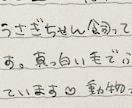 うさぎちゃん飼って
す。真っ白い毛でふ
ています♡ 動物